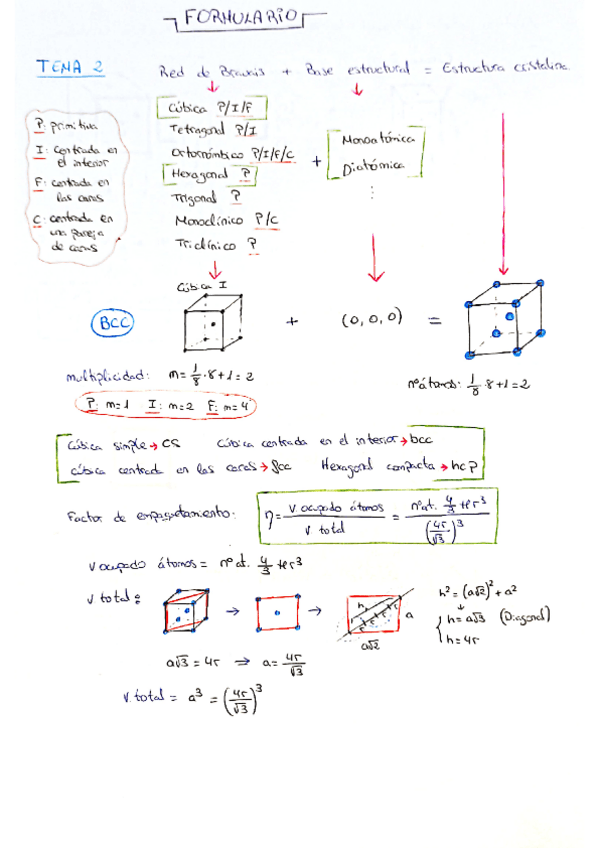 FORMULARIO
TEMA 2
Red de Bravais + Base estructural = Estructura cristalina
P: primitiva
I: centrada en
el interior
F: centrada en
las caras
C: centrada en
una pareja
de caras
Cúbica P/I/F
Tetragonal P/I
Ortorrómbico P/I/F/C
Hexagonal P
Trigonal P
Monoclínico P/C
Triclínico P
+
Monoatómica
Diatómica
⋮
Cúbica I
BCC
+ (0,0,0) =
multiplicidad: m = 1/8 · 8 + 1 = 2
nº átomos: 1/8 · 8 + 1 = 2
P: m=1 I: m=2 F: m=4
Cúbica simple → CS Cúbica centrada en el interior → bcc
cúbica centrada en las caras → fcc Hexagonal compacta → hcp
Factor de empaquetamiento: η = V ocupado átomos / V total = nº at. 4/3 π r³ / (4r/√3)³
V ocupado átomos = nº at. 4/3 π r³
V total:
h
a
a√2
h² = (a√2)² + a²
h = a√3 (Diagonal)
h = 4r
a√3 = 4r → a = 4r/√3
V total = a³ = (4r/√3)³